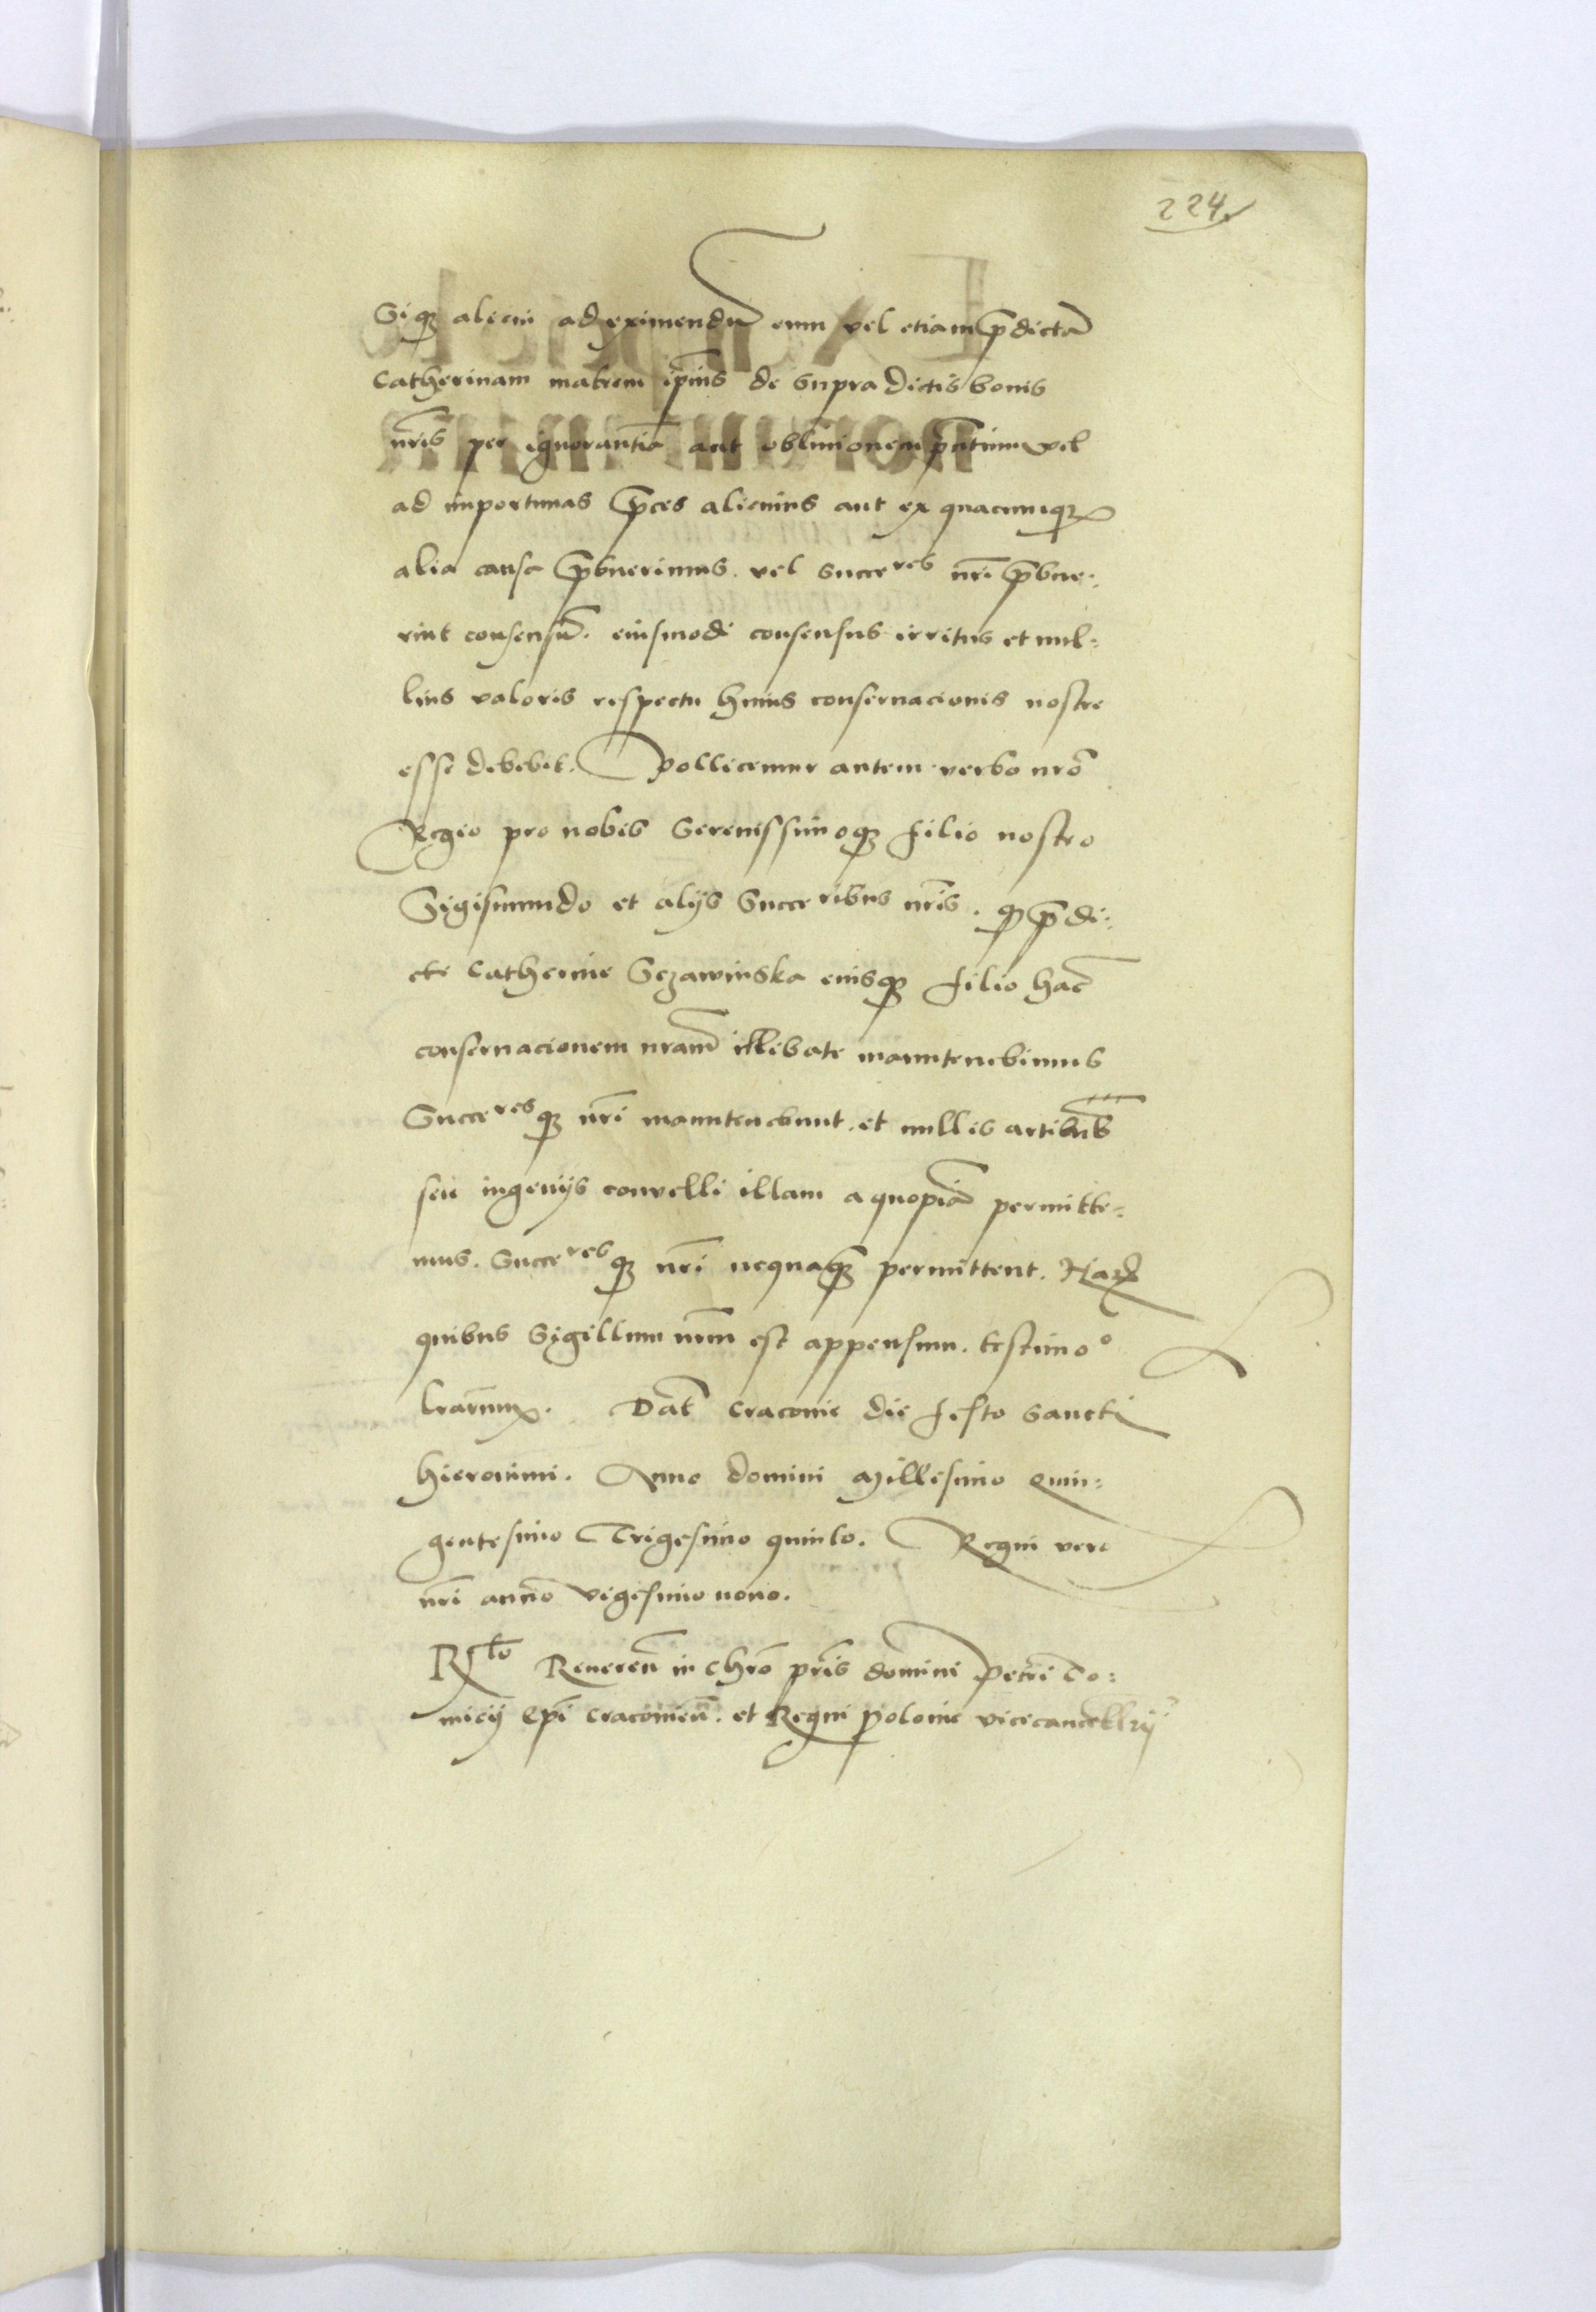 224
Siq(ue) alicui ad eximendū eum vel etiam p̄dictā
Catherinam matrem ip̄ius de supradictis bonis
nr̄is per ignorantiā aut obliuionem p̄ntium vel
ad importunas p̄ces alicuius aut ex quacumq(ue)
alia causa p̄buerimus. vel Succeres nr̄i p̄bue-
rint consensū. eiusmodi consensus irritus et nul-
lius valoris respectu huius conseruacionis nostre
esse debebit. Pollicemur autem verbo nrō
Regio pro nobis Serenissimoq(ue) filio nostro
Sigismundo et alijs Succeribus nr̄is. q p̄di-
cte Catherine Sczawinska eiusq(ue) filio hac̄
conseruacionem nram̄ illibate manutenebimus
Succeresq(ue) nr̄i manutenebunt. et nullis artibus
seu ingenijs conuelli illam a quopiā permitte-
mus. Succeresq(ue) nr̄i nequaq̄ permittent. Har(um)
quibus Sigillum nrm̄ est appensum. testimoo
lrar̄um. Dat̄ Cracouie die festo Sancti
Hieronimi. Anno domini Millesimo Quin-
gentesimo Trigesimo quinto. Regni vero
nr̄i anno vigesimo nono.
Rto Reueren̄ in chrō pr̄is domini Petri To-
micij Ep̄i Cracouien̄. et Regni Polonie vicecancellrij